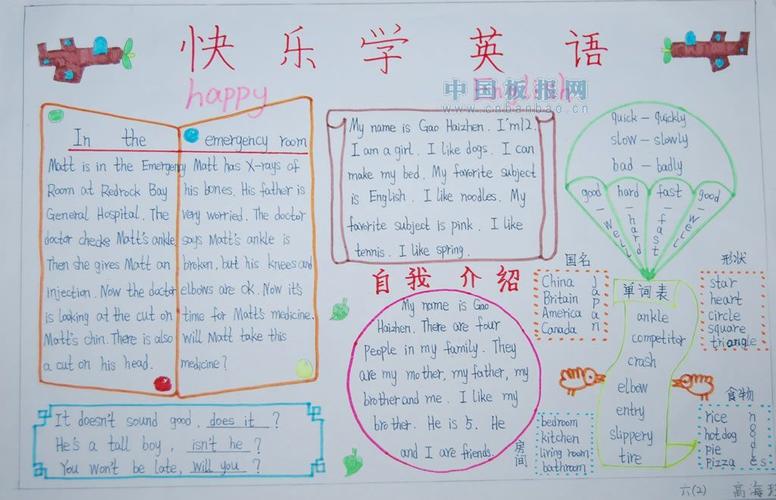 快乐学英语
happy English
中国板报网
www.cnbanbao.cn
In the emergency room
Matt is in the Emergency
Room at Redrock Bay
General Hospital. The
doctor checks Matt's ankle.
Then she gives Matt an
injection. Now the doctor
is looking at the cut on
Matt's chin. There is also
a cut on his head.
Matt has X-rays of
his bones. His father is
very worried. The doctor
says Matt's ankle is
broken, but his knees and
elbows are ok. Now it's
time for Matt's medicine.
Will Matt take this
medicine?
My name is Gao Haizhen. I'm12.
I am a girl. I like dogs. I can
make my bed. My favorite subject
is English. I like noodles. My
favorite subject is pink. I like
tennis. I like spring.
自我介绍
My name is Gao
Haizhen. There are four
People in my family. They
are my mother, my father, my
brother and me. I like my
brother. He is 5. He
and I are friends.
quick - quickly
slow - slowly
bad - badly
good - well
hard - hard
fast - fast
good - well
国名
China
Britain
America
Canada
Japan
形状
star
heart
circle
square
triangle
单词表
ankle
competitor
crash
elbow
entry
slippery
tire
房间
bedroom
kitchen
living room
bathroom
食物
rice
hotdog
pie
Pizza
It doesn't sound good, does it ?
He's a tall boy, isn't he ?
You won't be late, will you ?
六(2)
高海